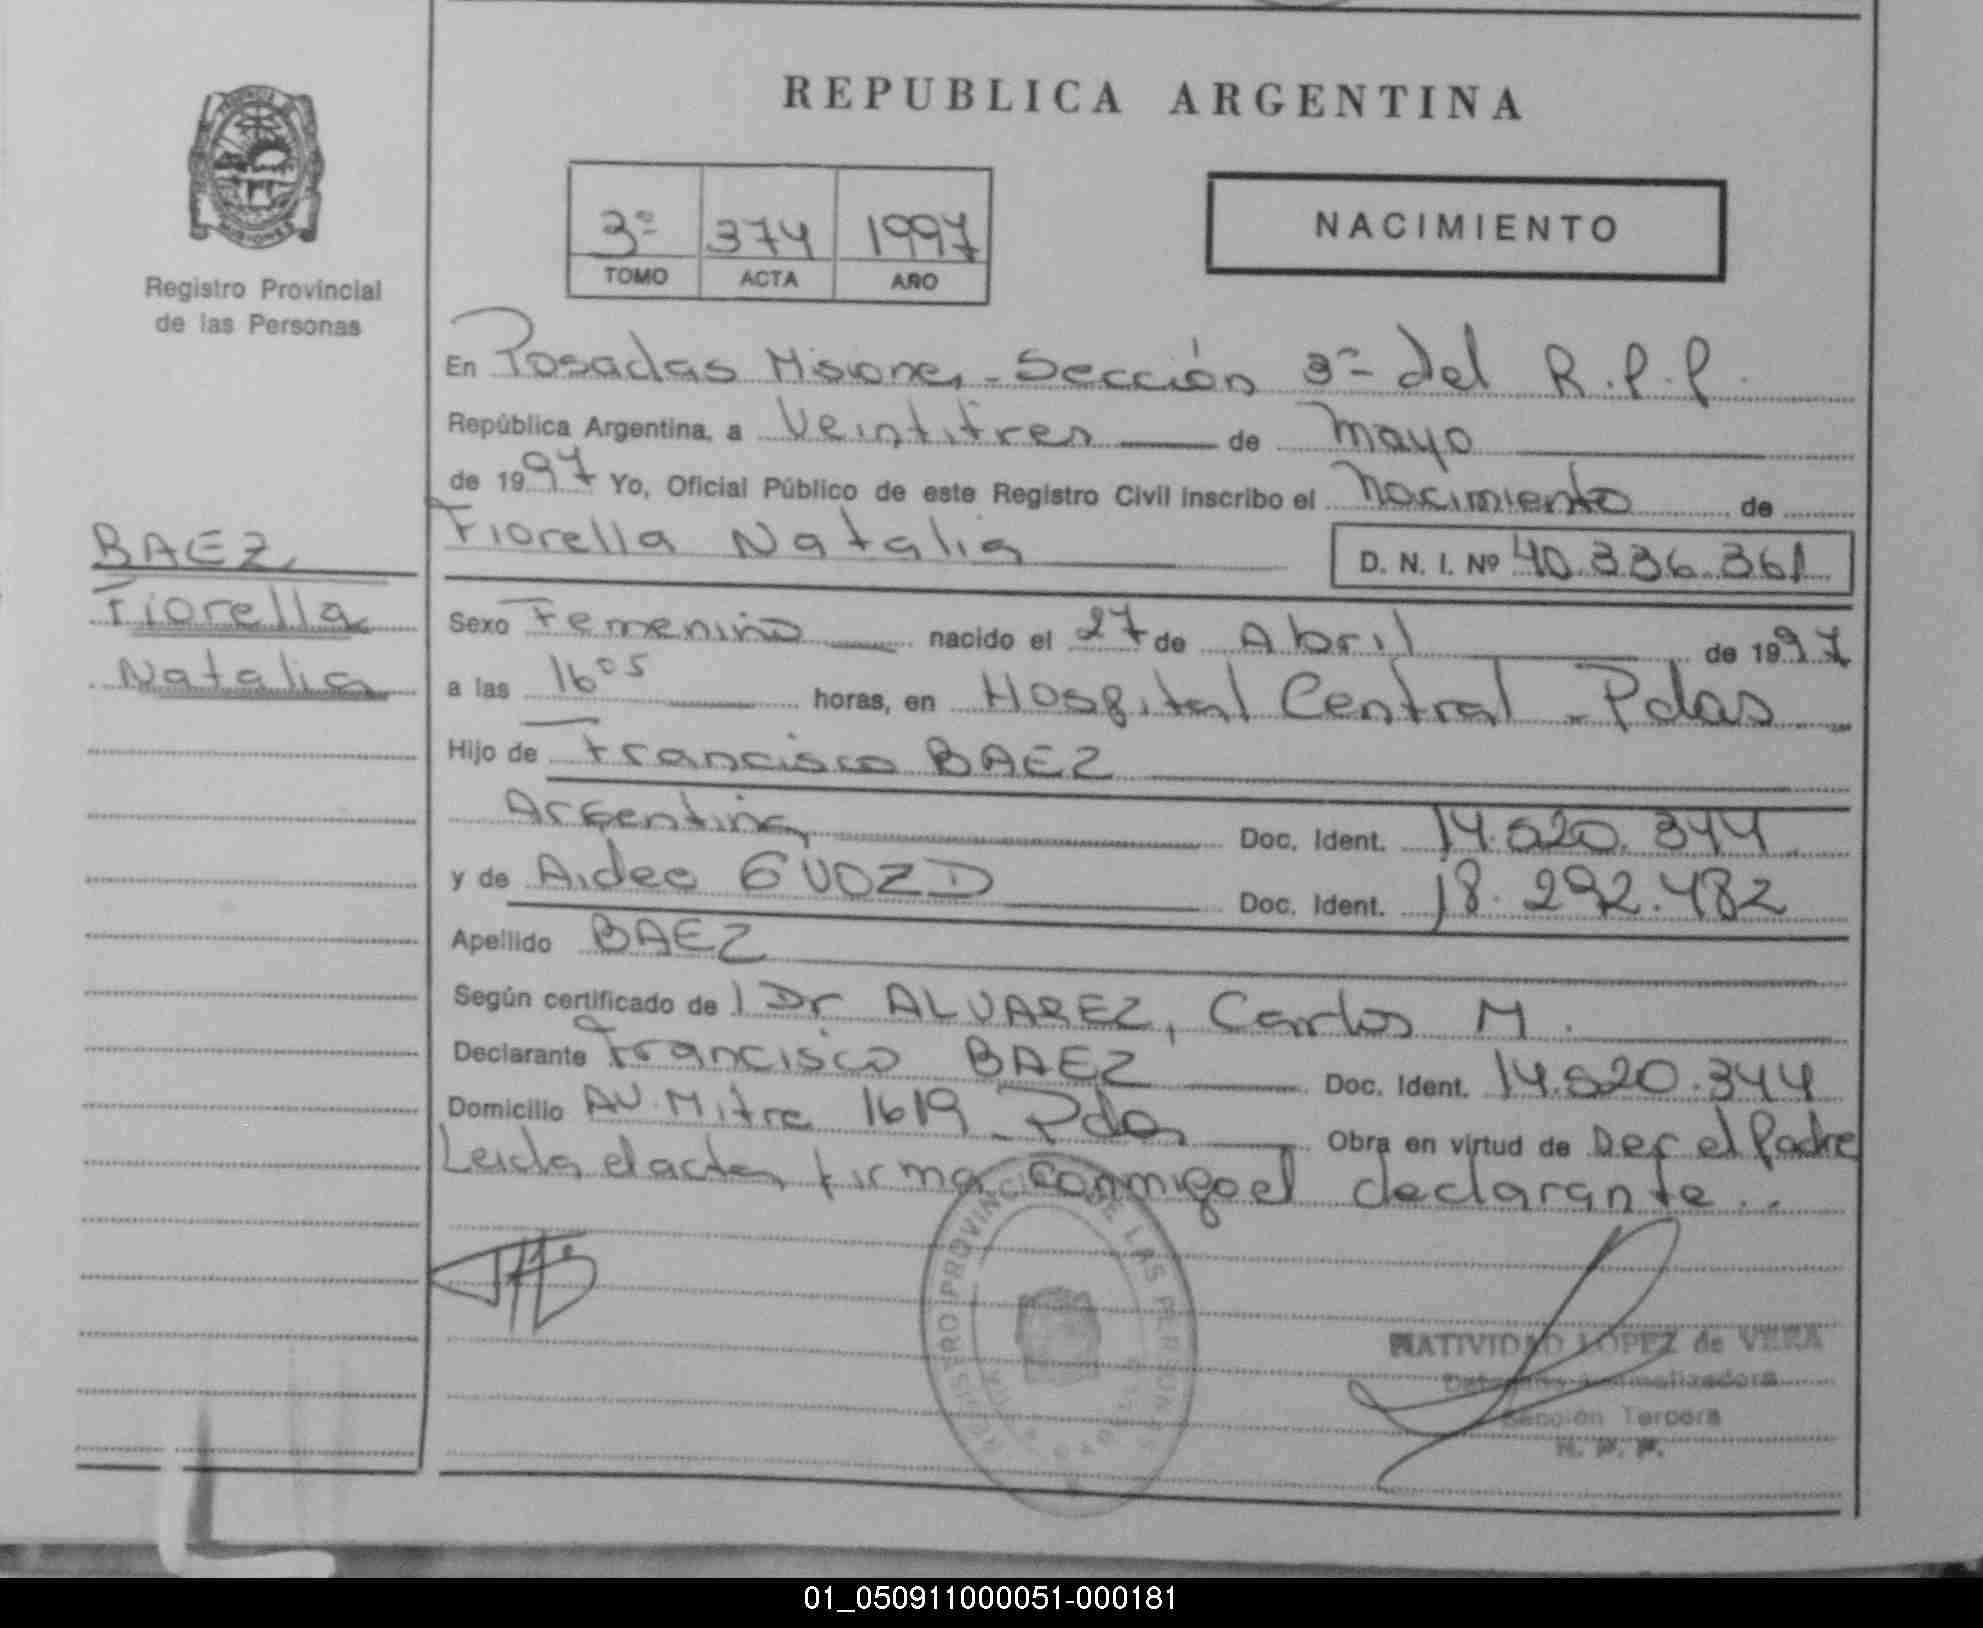 REPUBLICA ARGENTINA
PROVINCIA DE
MISIONES
Registro Provincial
de las Personas
3º 374 1997
TOMO ACTA AÑO
NACIMIENTO
En Posadas Misiones - Sección 3ª del R.P.P.
República Argentina, a Veintitres de Mayo
de 1997 Yo, Oficial Público de este Registro Civil inscribo el Nacimiento de
Fiorella Natalia D. N. I. Nº 40.336.361
BAEZ,
Fiorella
Natalia
Sexo Femenino nacido el 27 de Abril de 1997
a las 16 05 horas, en Hospital Central - Pdas
Hijo de Francisco BAEZ
Argentina, Doc. Ident. 14.520.344
y de Aidee GUOZD Doc. Ident. 18.292.482
Apellido BAEZ
Según certificado de l Dr ALVAREZ, Carlos M.
Declarante Francisco BAEZ Doc. Ident. 14.520.344
Domicilio AV. Mitre 1619 - Pdas Obra en virtud de Der el Padre
Leida el acta, firma conmigo el declarante..
REGISTRO PROVINCIAL DE LAS PERSONAS
NATIVIDAD LOPEZ de VERA
Sección Tercera
R. P. P.
01_050911000051-000181